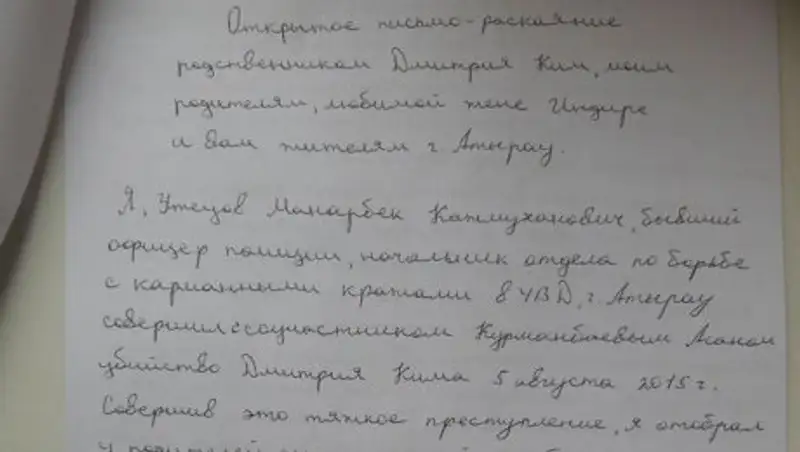 Открытое письмо-раскаяние
родственникам Дмитрия Ким, моим
родителям, любимой жене Индире
и вам жителям г. Атырау.
Я, Утецов Манарбек Капмуханович, бывший
офицер полиции, начальник отдела по борьбе
с карманными кражами в УВД, г. Атырау
совершил с соучастником Курманбаевым Асаном
убийство Дмитрия Кима 5 августа 2015 г.
Совершив это тяжкое преступление, я отобрал
у родителей